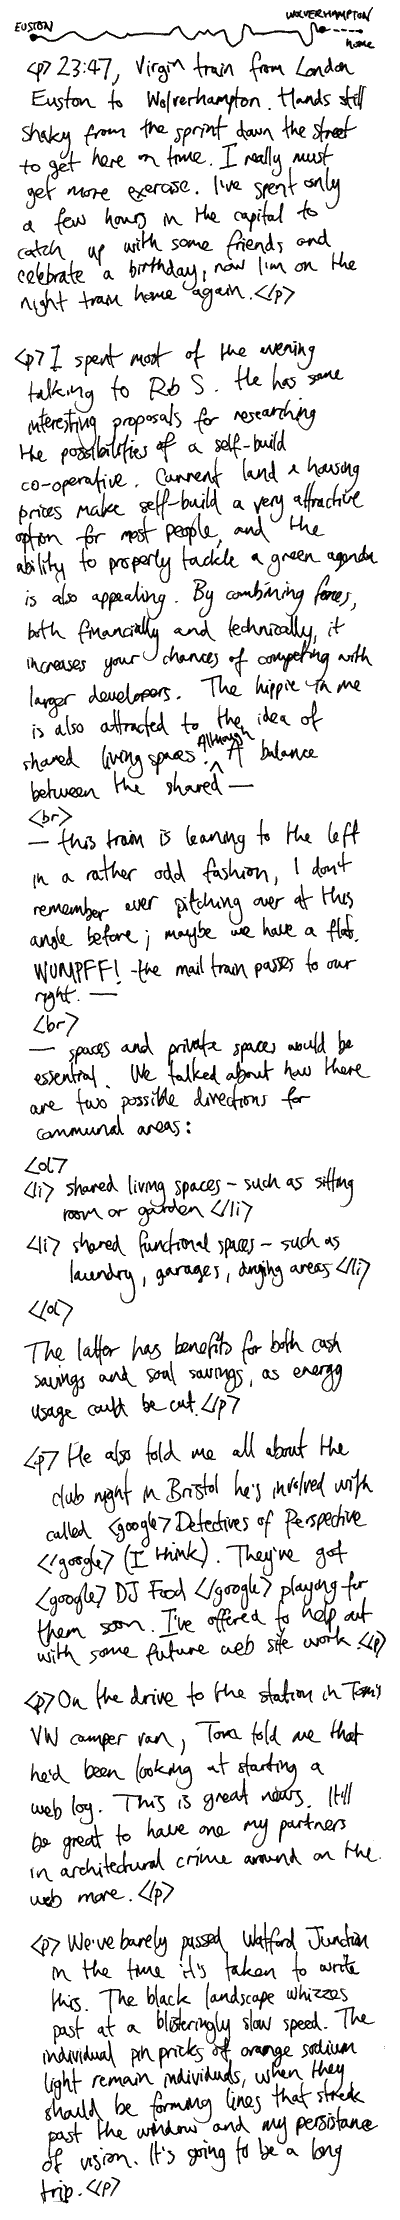 EUSTON
WOLVERHAMPTON
home
<p> 23:47, Virgin train from London
Euston to Wolverhampton. Hands still
shaky from the sprint down the street
to get here on time. I really must
get more exercise. I've spent only
a few hours in the capital to
catch up with some friends and
celebrate a birthday, now I'm on the
night train home again.</p>
<p> I spent most of the evening
talking to Rob S. He has some
interesting proposals for researching
the possibilities of a self-build
co-operative. Current land & housing
prices make self-build a very attractive
option for most people, and the
ability to properly tackle a green agenda
is also appealing. By combining forces,
both financially and technically, it
increases your chances of competing with
larger developers. The hippie in me
is also attracted to the idea of
shared living spaces. Although A balance
between the shared —
<br>
— this train is leaning to the left
in a rather odd fashion, I don't
remember ever pitching over at this
angle before; maybe we have a flat.
WUMPFF! - the mail train passes to our
right. —
<br>
— spaces and private spaces would be
essential. We talked about how there
are two possible directions for
communal areas:
<ol>
<li> shared living spaces - such as sitting
room or garden </li>
<li> shared functional spaces - such as
laundry, garages, drying areas </li>
</ol>
The latter has benefits for both cash
savings and soul savings, as energy
usage could be cut.</p>
<p> He also told me all about the
club night in Bristol he's involved with
called <google> Detectives of Perspective
</google> (I think). They've got
<google> DJ Food </google> playing for
them soon. I've offered to help out
with some future web site work.</p>
<p> On the drive to the station in Tom's
VW camper van, Tom told me that
he'd been looking at starting a
web log. This is great news. It'll
be great to have one my partners
in architectural crime around on the
web more.</p>
<p> We've barely passed Watford Junction
in the time it's taken to write
this. The black landscape whizzes
past at a blisteringly slow speed. The
individual pin pricks of orange sodium
light remain individuals, when they
should be forming lines that streak
past the window and my persistance
of vision. It's going to be a long
trip.</p>